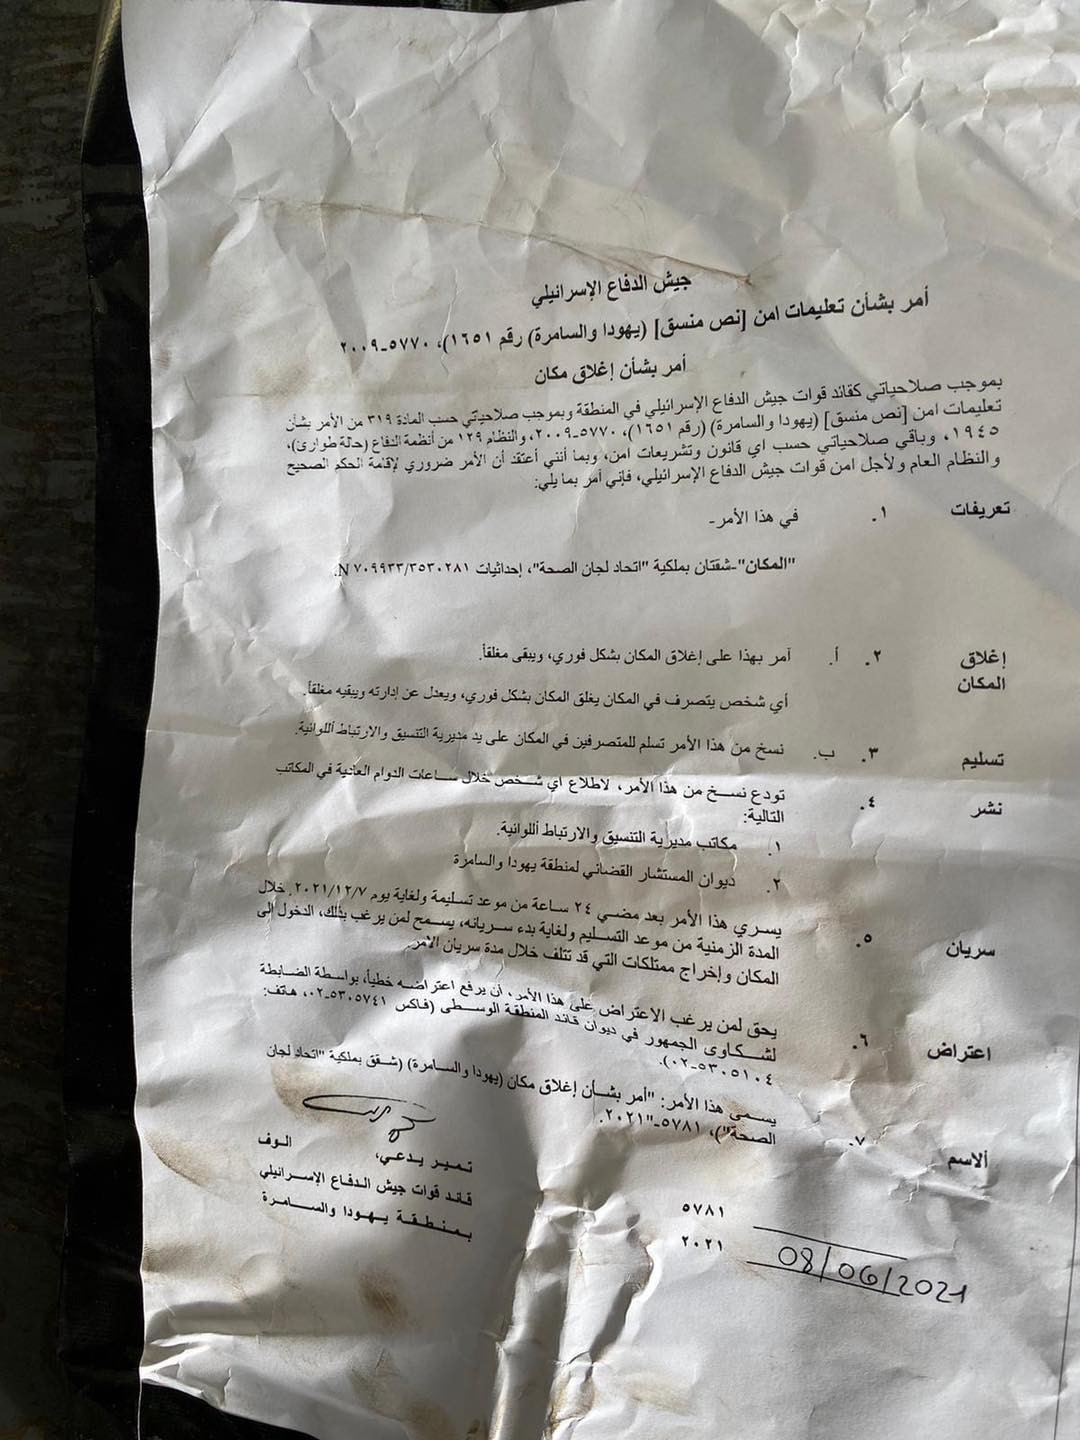 جيش الدفاع الإسرائيلي
أمر بشأن تعليمات امن [نص منسق] (يهودا والسامرة) رقم ١٦٥١)، ٥٧٧٠-٢٠٠٩
أمر بشأن إغلاق مكان
بموجب صلاحياتي كقائد قوات جيش الدفاع الإسرائيلي في المنطقة وبموجب صلاحياتي حسب المادة ٣١٩ من الأمر بشأن
تعليمات امن [نص منسق] (يهودا والسامرة) (رقم ١٦٥١)، ٥٧٧٠-٢٠٠٩، والنظام ١٢٩ من أنظمة الدفاع (حالة طوارئ)،
١٩٤٥، وباقي صلاحياتي حسب اي قانون وتشريعات امن، وبما أنني أعتقد أن الأمر ضروري لإقامة الحكم الصحيح
والنظام العام ولأجل امن قوات جيش الدفاع الإسرائيلي، فإني أمر بما يلي:
تعريفات ١. في هذا الأمر-
"المكان"-شقتان بملكية "اتحاد لجان الصحة"، إحداثيات N ٧٠٩٩٣٣/٣٥٣٠٢٨١.
إغلاق المكان ٢. أ. آمر بهذا على إغلاق المكان بشكل فوري، ويبقى مغلقاً.
أي شخص يتصرف في المكان يغلق المكان بشكل فوري، ويعدل عن إدارته ويبقيه مغلقاً.
تسليم ٣. ب. نسخ من هذا الأمر تسلم للمتصرفين في المكان على يد مديرية التنسيق والارتباط أللوائية.
نشر ٤. تودع نسخ من هذا الأمر، لاطلاع اي شخص خلال ساعات الدوام العادية في المكاتب
التالية:
١. مكاتب مديرية التنسيق والارتباط أللوائية.
٢. ديوان المستشار القضائي لمنطقة يهودا والسامرة
سريان ٥. يسري هذا الأمر بعد مضي ٢٤ ساعة من موعد تسليمة ولغاية يوم ٢٠٢١/١٢/٧. خلال
المدة الزمنية من موعد التسليم ولغاية بدء سريانه، يسمح لمن يرغب بذلك، الدخول الى
المكان وإخراج ممتلكات التي قد تتلف خلال مدة سريان الامر.
اعتراض ٦. يحق لمن يرغب الاعتراض على هذا الأمر، أن يرفع اعتراضه خطياً، بواسطة الضابطة
لشكاوى الجمهور في ديوان قائد المنطقة الوسطى (فاكس ٥٣٠٥٧٤١-٠٢، هاتف:
٥٣٠٥١٠٤-٠٢).
ألاسم ٧. يسمى هذا الأمر: "أمر بشأن إغلاق مكان (يهودا والسامرة) (شقق بملكية "اتحاد لجان
الصحة")، ٥٧٨١-"٢٠٢١.
تمير يدعي، الوف
قائد قوات جيش الدفاع الإسرائيلي
بمنطقة يهودا والسامرة
٥٧٨١
٢٠٢١ 08/06/2021